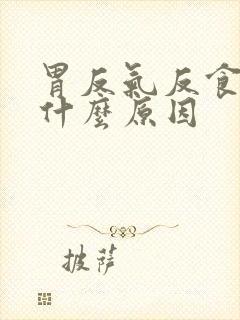 胃反氣反食
什麼原因
披薩